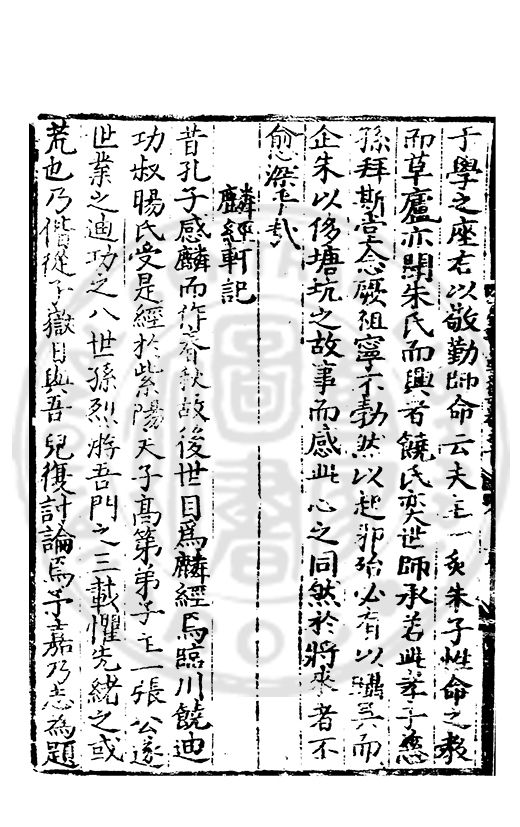 于學之座右以敬勤師命云夫主一受朱子性命之教
而草廬亦聞朱氏而興者饒氏奕世師承若此孝子慈
孫拜斯堂念厥祖寧不勃然以起邪殆必有以驥吳而
企朱以修塘坑之故事而感此心之同然於將來者不
愈深乎哉
麟經軒記
昔孔子感麟而作春秋故後世目為麟經焉臨川饒迪
功叔暘氏受是經於紫陽夫子高第弟子主一張公遂
世業之迪功之八世孫烈游吾門之三載懼先緒之或
荒也乃偕從子嶽日與吾兒復討論焉予嘉乃志為題